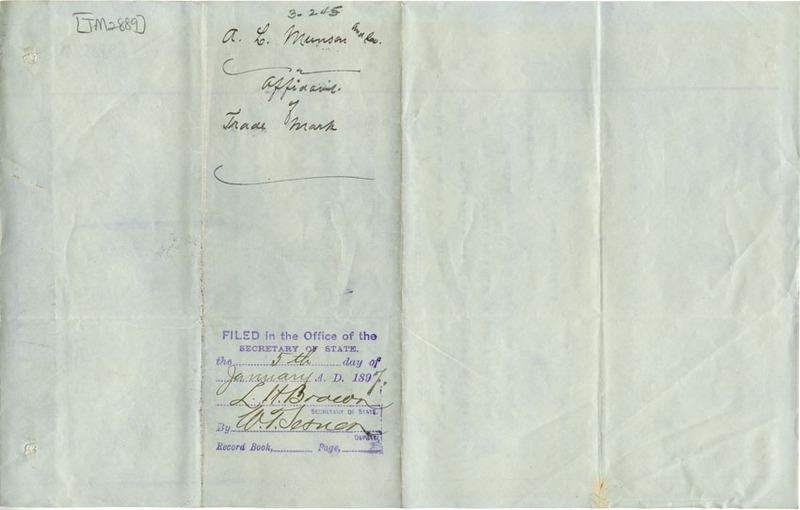 [TM2889]
3-245
A. L. Munson and Co.
Affidavit
of
Trade Mark
FILED in the Office of the
SECRETARY OF STATE.
the 5th day of
January A. D. 1897.
L. H. Brown
SECRETARY OF STATE
By
DEPUTY
Record Book, Page,